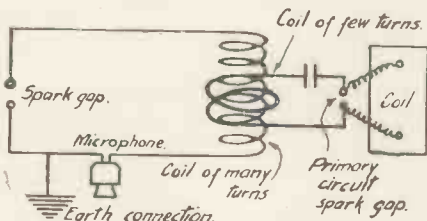 Coil of few turns.
Spark gap.
Coil
Microphone.
Coil of many
turns
Primary
circuit
spark gap.
Earth connection.